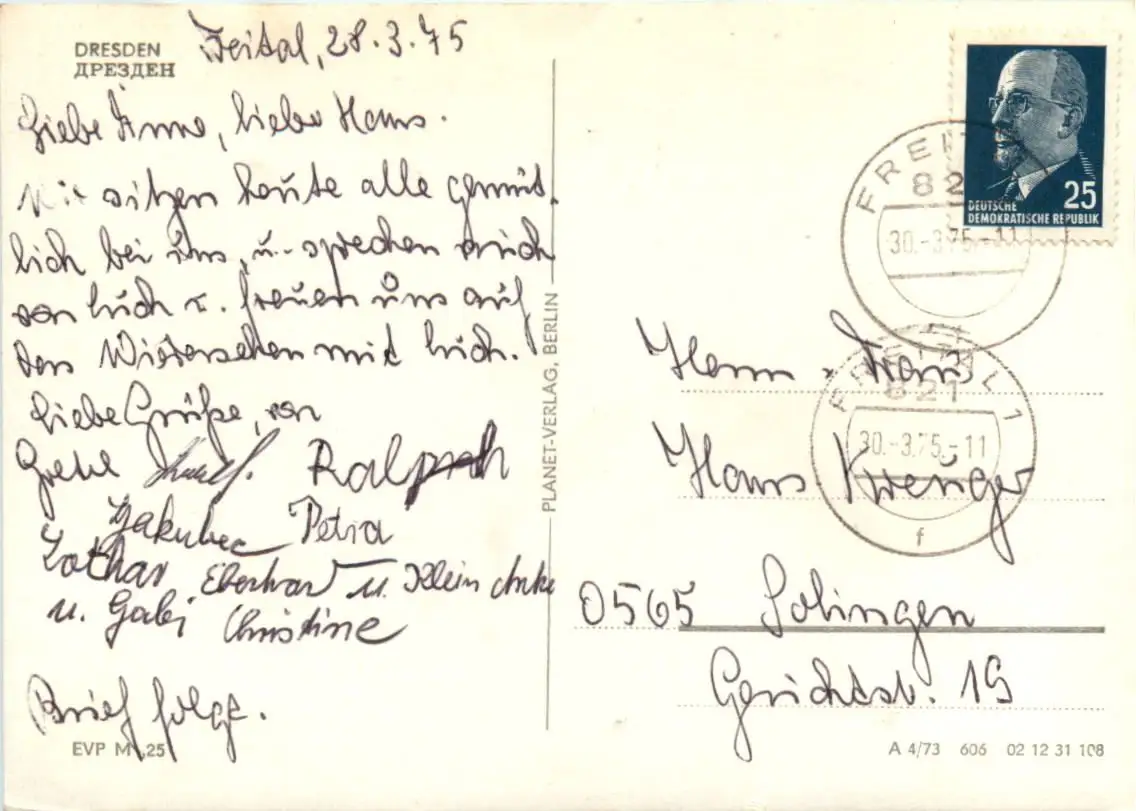 DRESDEN
ДРЕЗДЕН
Freital, 28.3.75
Liebe Anne, lieber Hans.
Wir sitzen heute alle gemüt-
lich bei uns, u. sprechen auch
von Euch u. freuen uns auf
das Wiedersehen mit Euch.
Liebe Grüße, von
Grete Ralph
Jakubec Petra
Lothar, Eberhard u. Klein Anke
u. Gabi Christine
Brief folgt.
EVP M ,25
PLANET-VERLAG, BERLIN
25
DEUTSCHE
DEMOKRATISCHE REPUBLIK
FREITAL
821
30.-3.75.-11
FREITAL 1
821
30.-3.75.-11
f
Herrn
Hans Krenger
0565 Solingen
Gerichtstr. 19
A 4/73 606 02 12 31 108